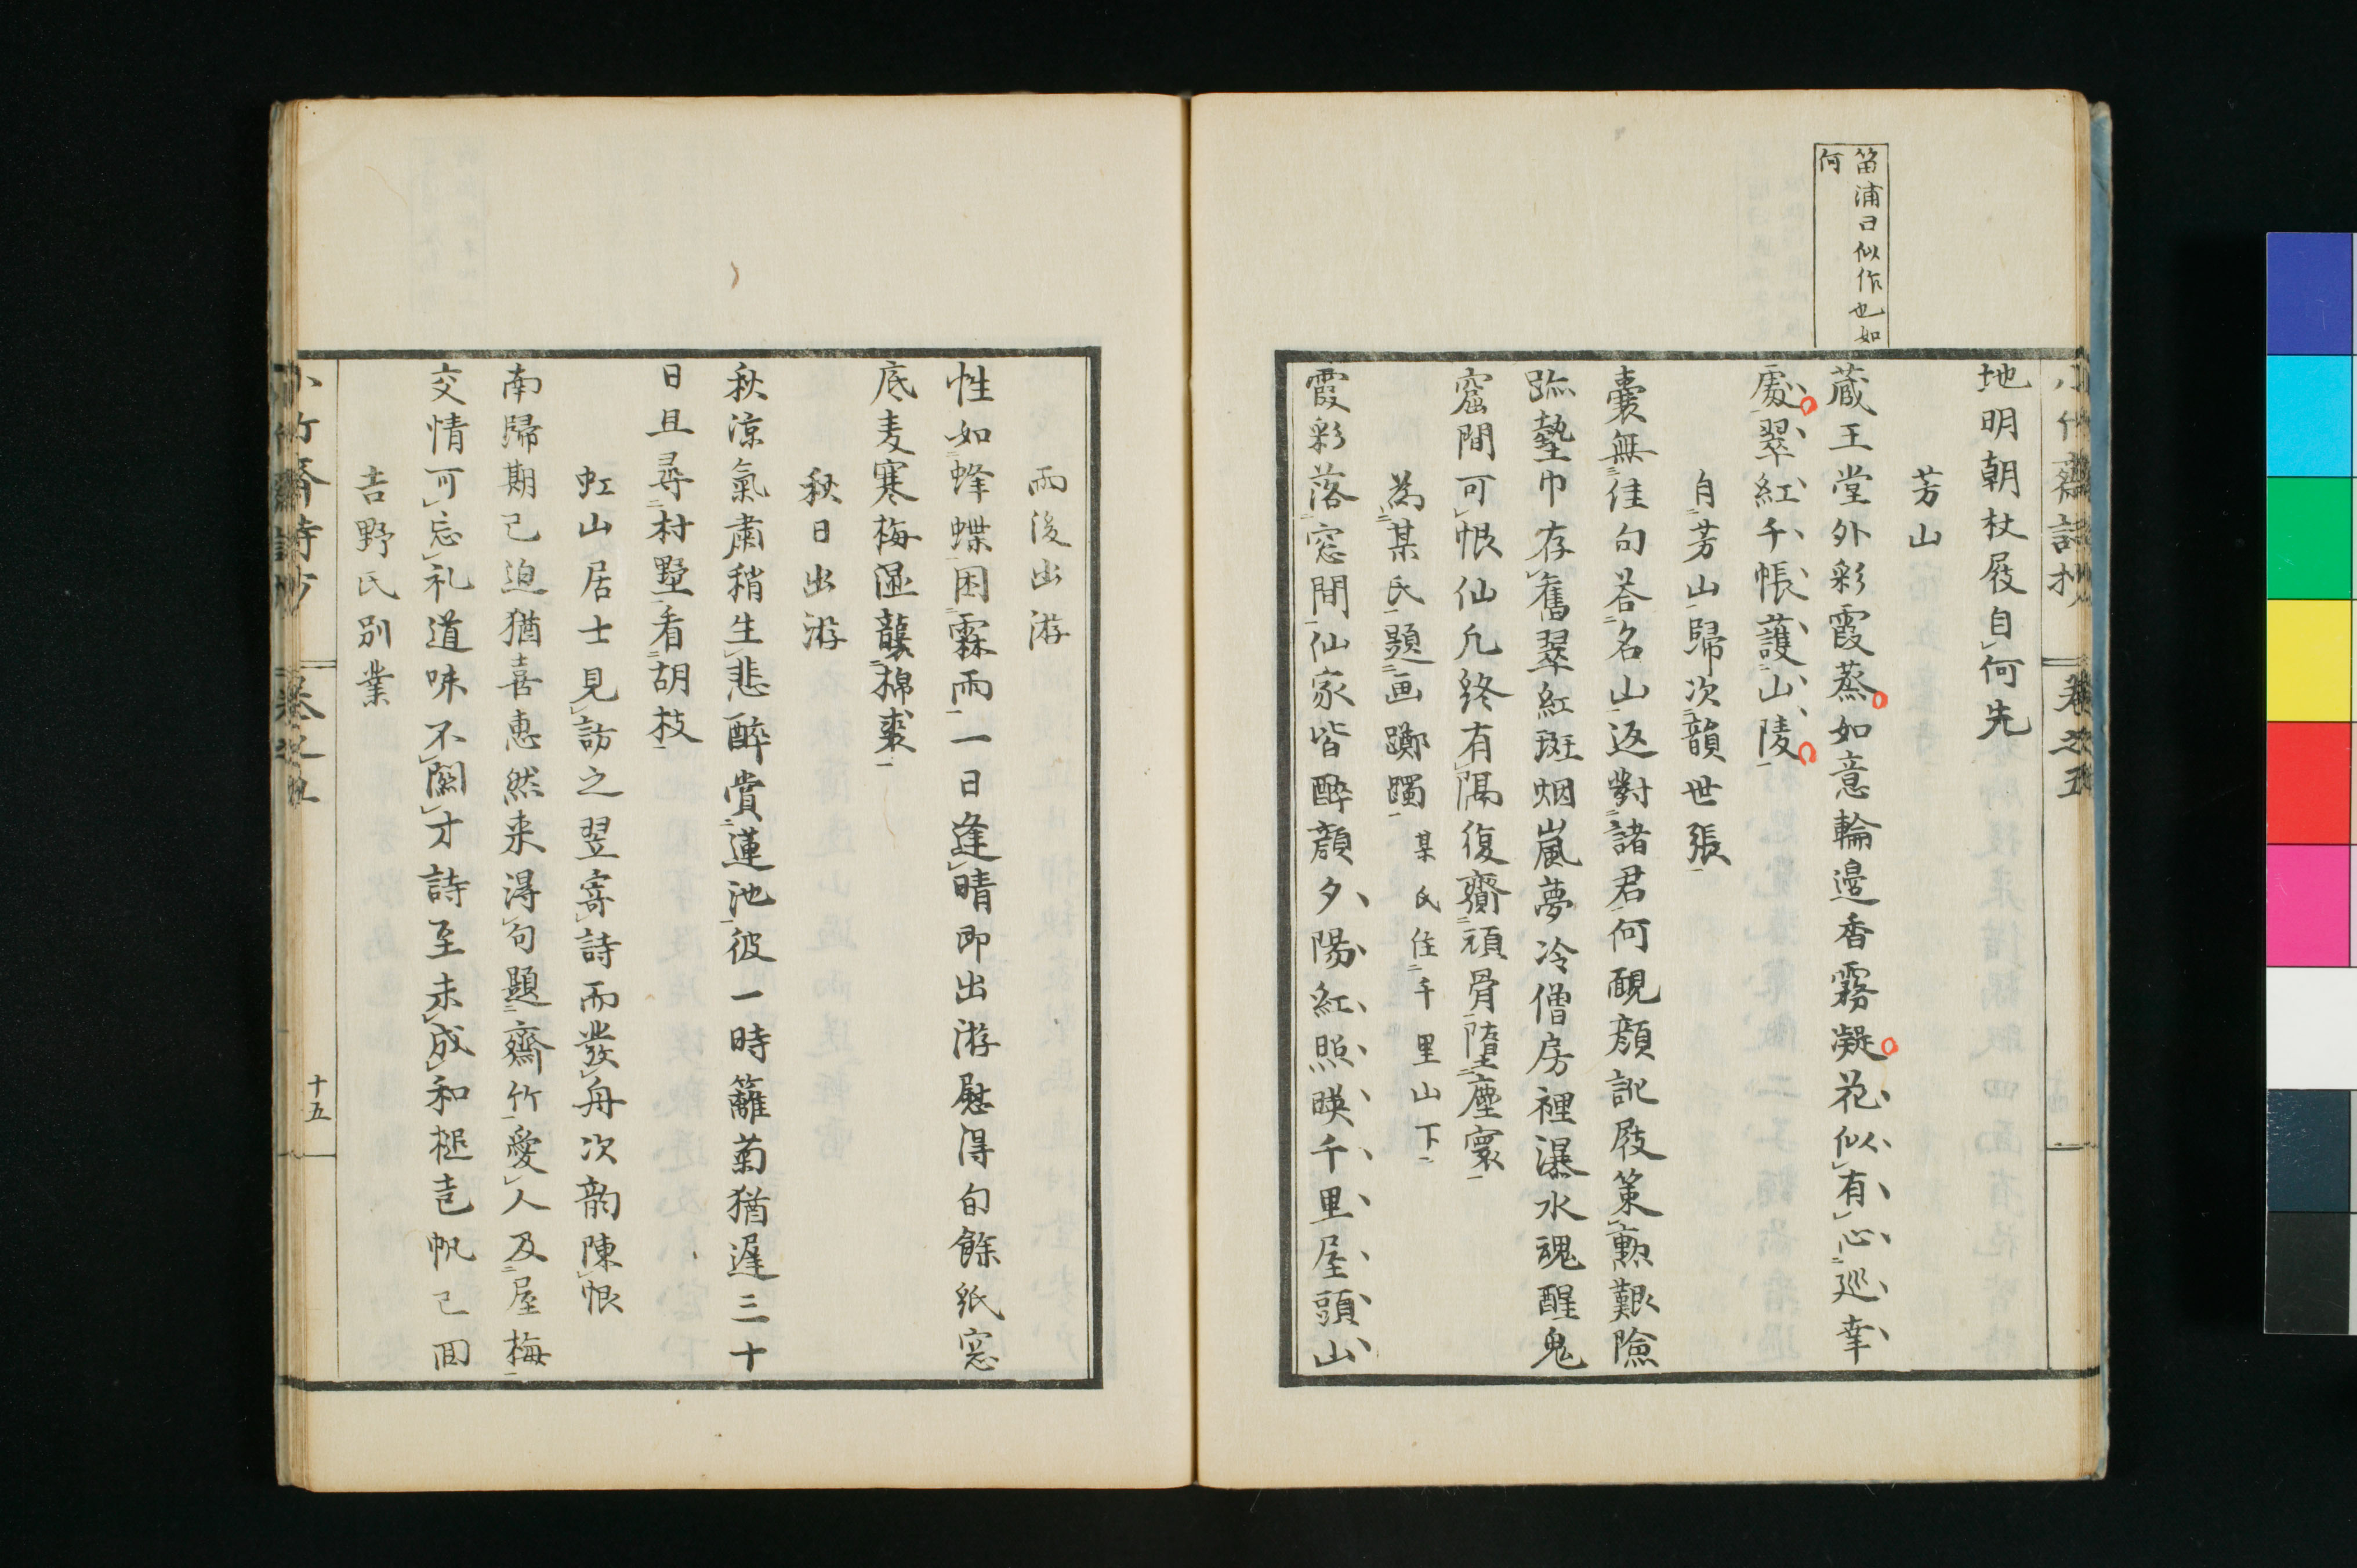 小竹齋詩抄 卷之五
笛浦曰似作也如
何
地明朝杖屐自何先
芳山
蔵王堂外彩霞蒸如意輪邊香霧凝花似有心巡幸
處翠紅千帳護山陵
自芳山歸次韻世張
囊無佳句荅名山返對諸君何靦顔訛屐策勲艱險
跡墊巾存舊翠紅斑烟嵐夢冷僧房裡瀑水魂醒鬼
窟間可恨仙凡終有隔復齎頑骨墮塵寰
為某氏題画躑躅某氏住千里山下
霞彩落窓間仙家皆醉顔夕陽紅照暎千里屋頭山
雨後出游
性如蜂蝶困霖雨一日逢晴即出游慰得旬餘紙窓
底麦寒梅湿襲棉裘
秋日出游
秋涼氣肅稍生悲醉賞蓮池彼一時籬菊猶遅三十
日且尋村墅看胡枝
虹山居士見訪之翌寄詩而發舟次韵陳恨
南歸期已迫猶喜惠然来得句題齋竹愛人及屋梅
交情可忘礼道味不關才詩至未成和槌㐖帆已回
吉野氏別業
小竹齋詩抄 卷之五 十五